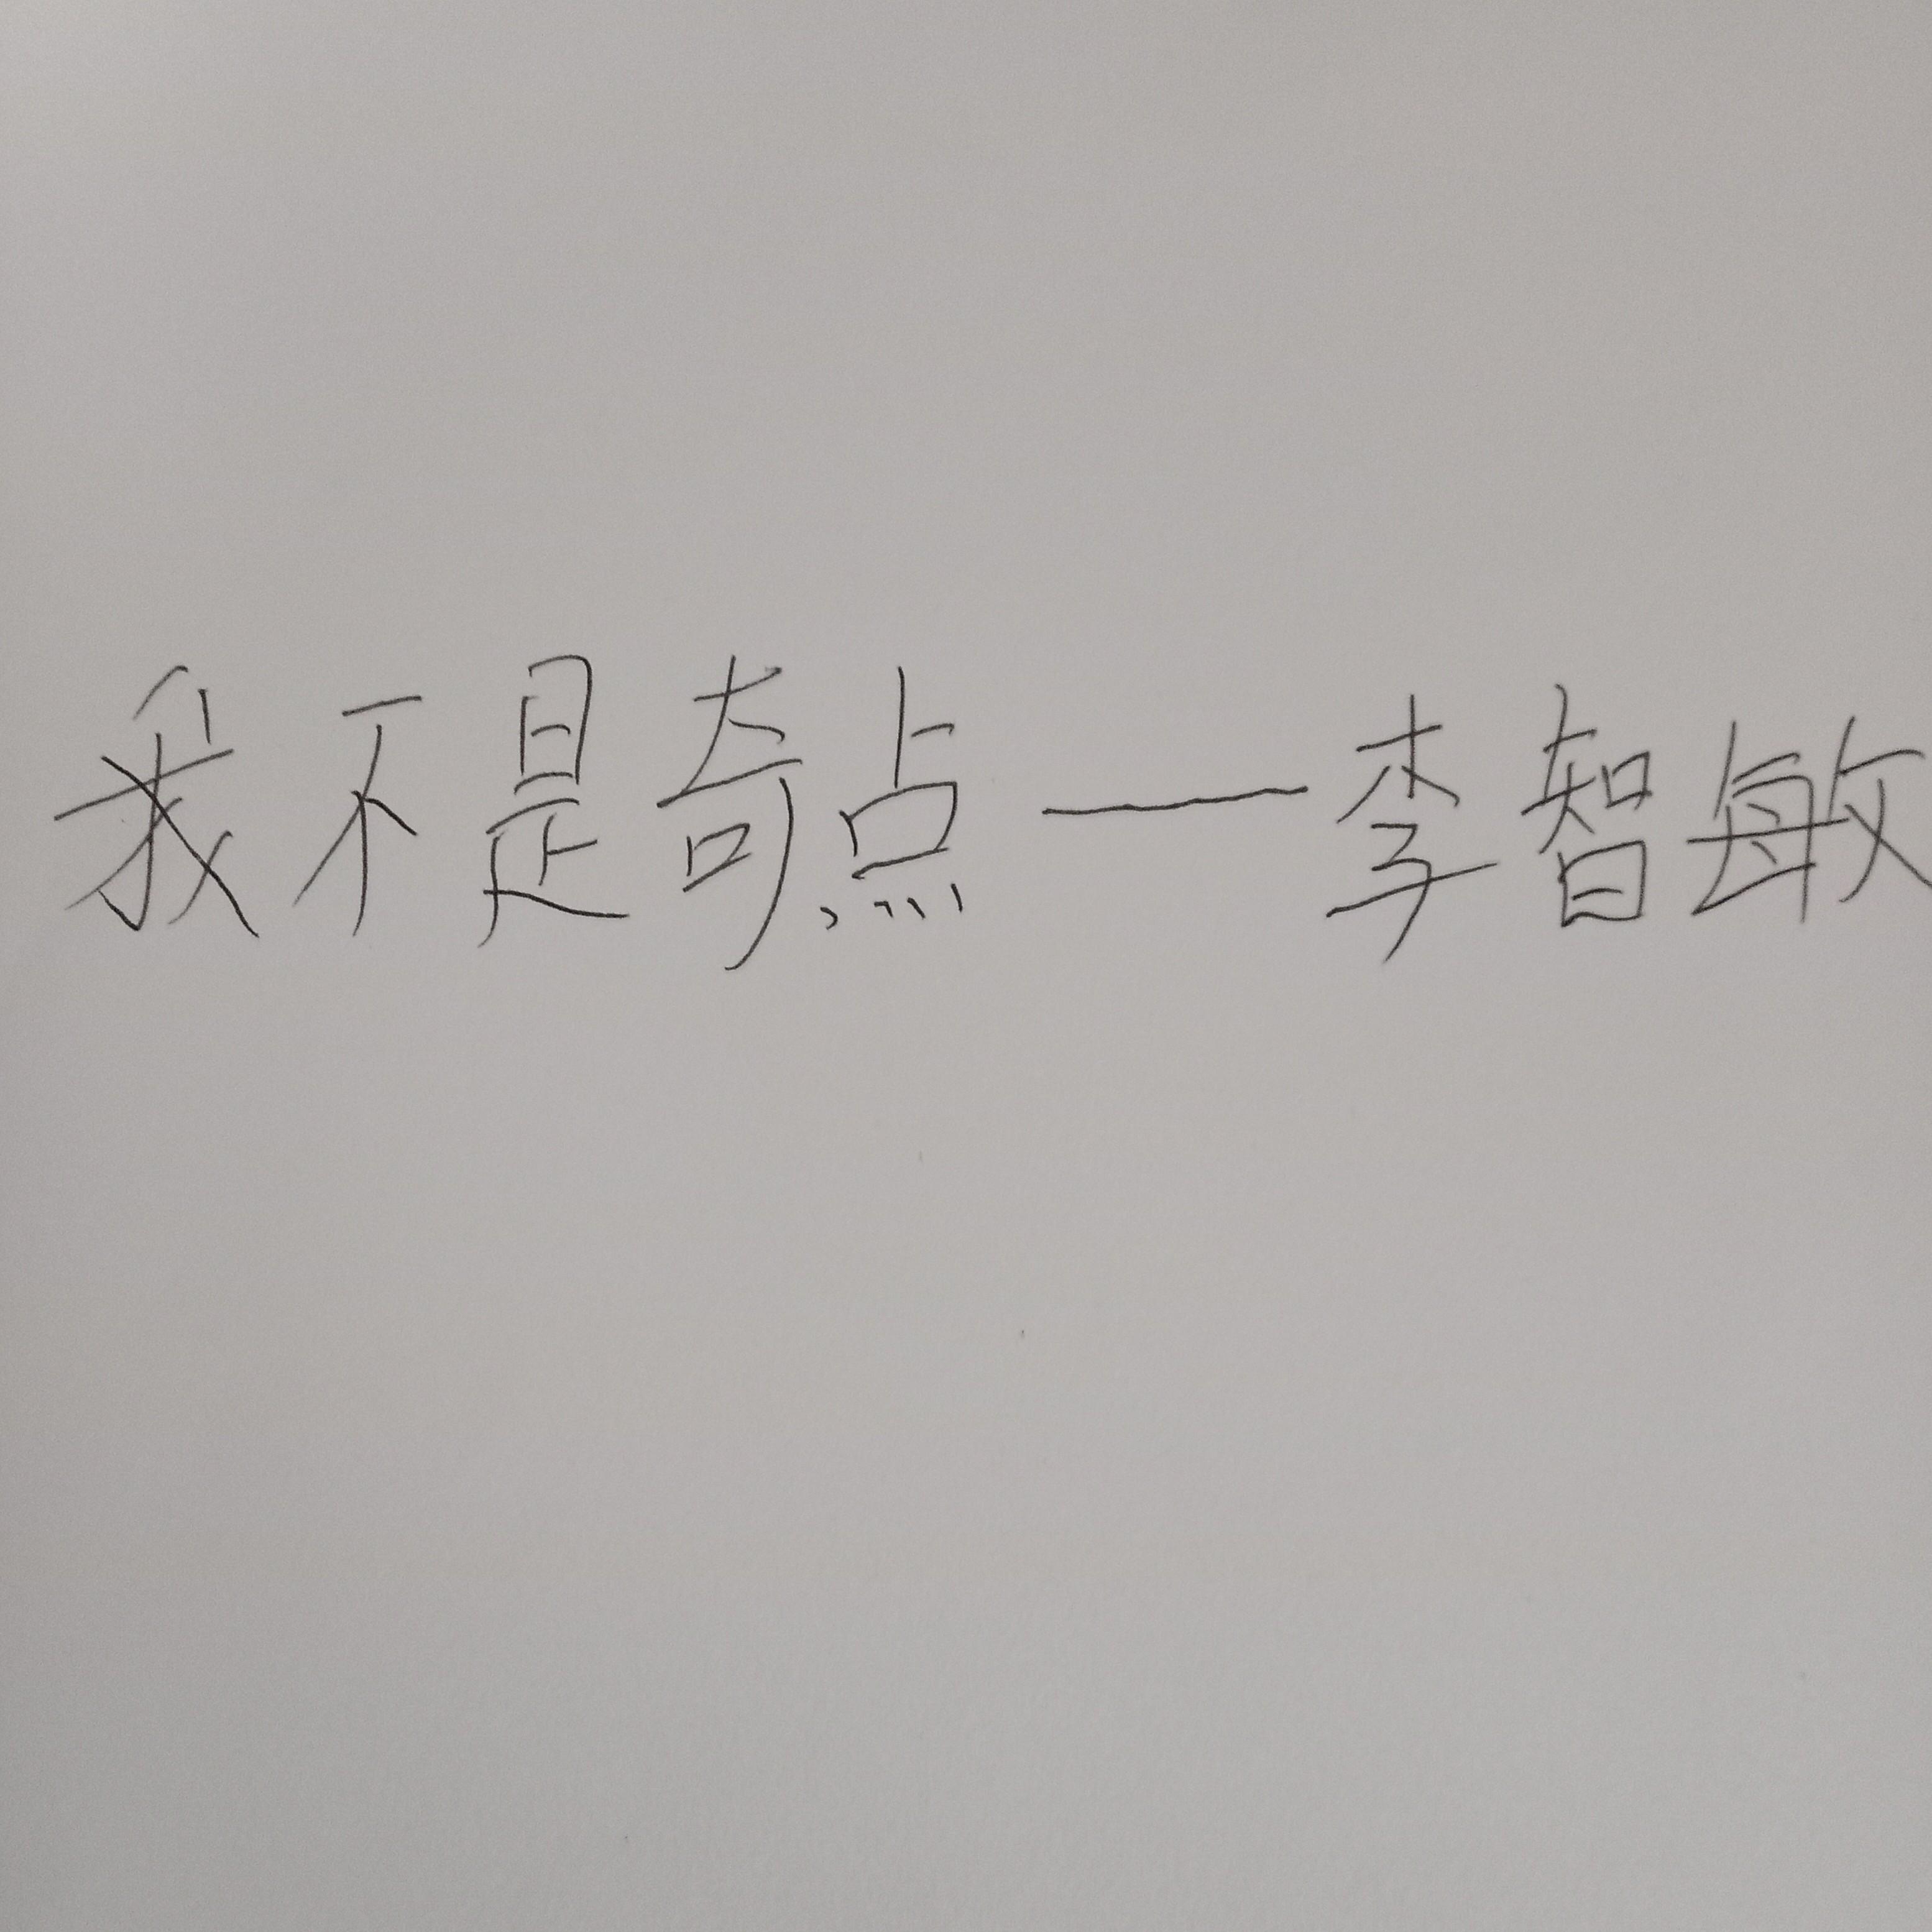 我不是奇点——李智敏